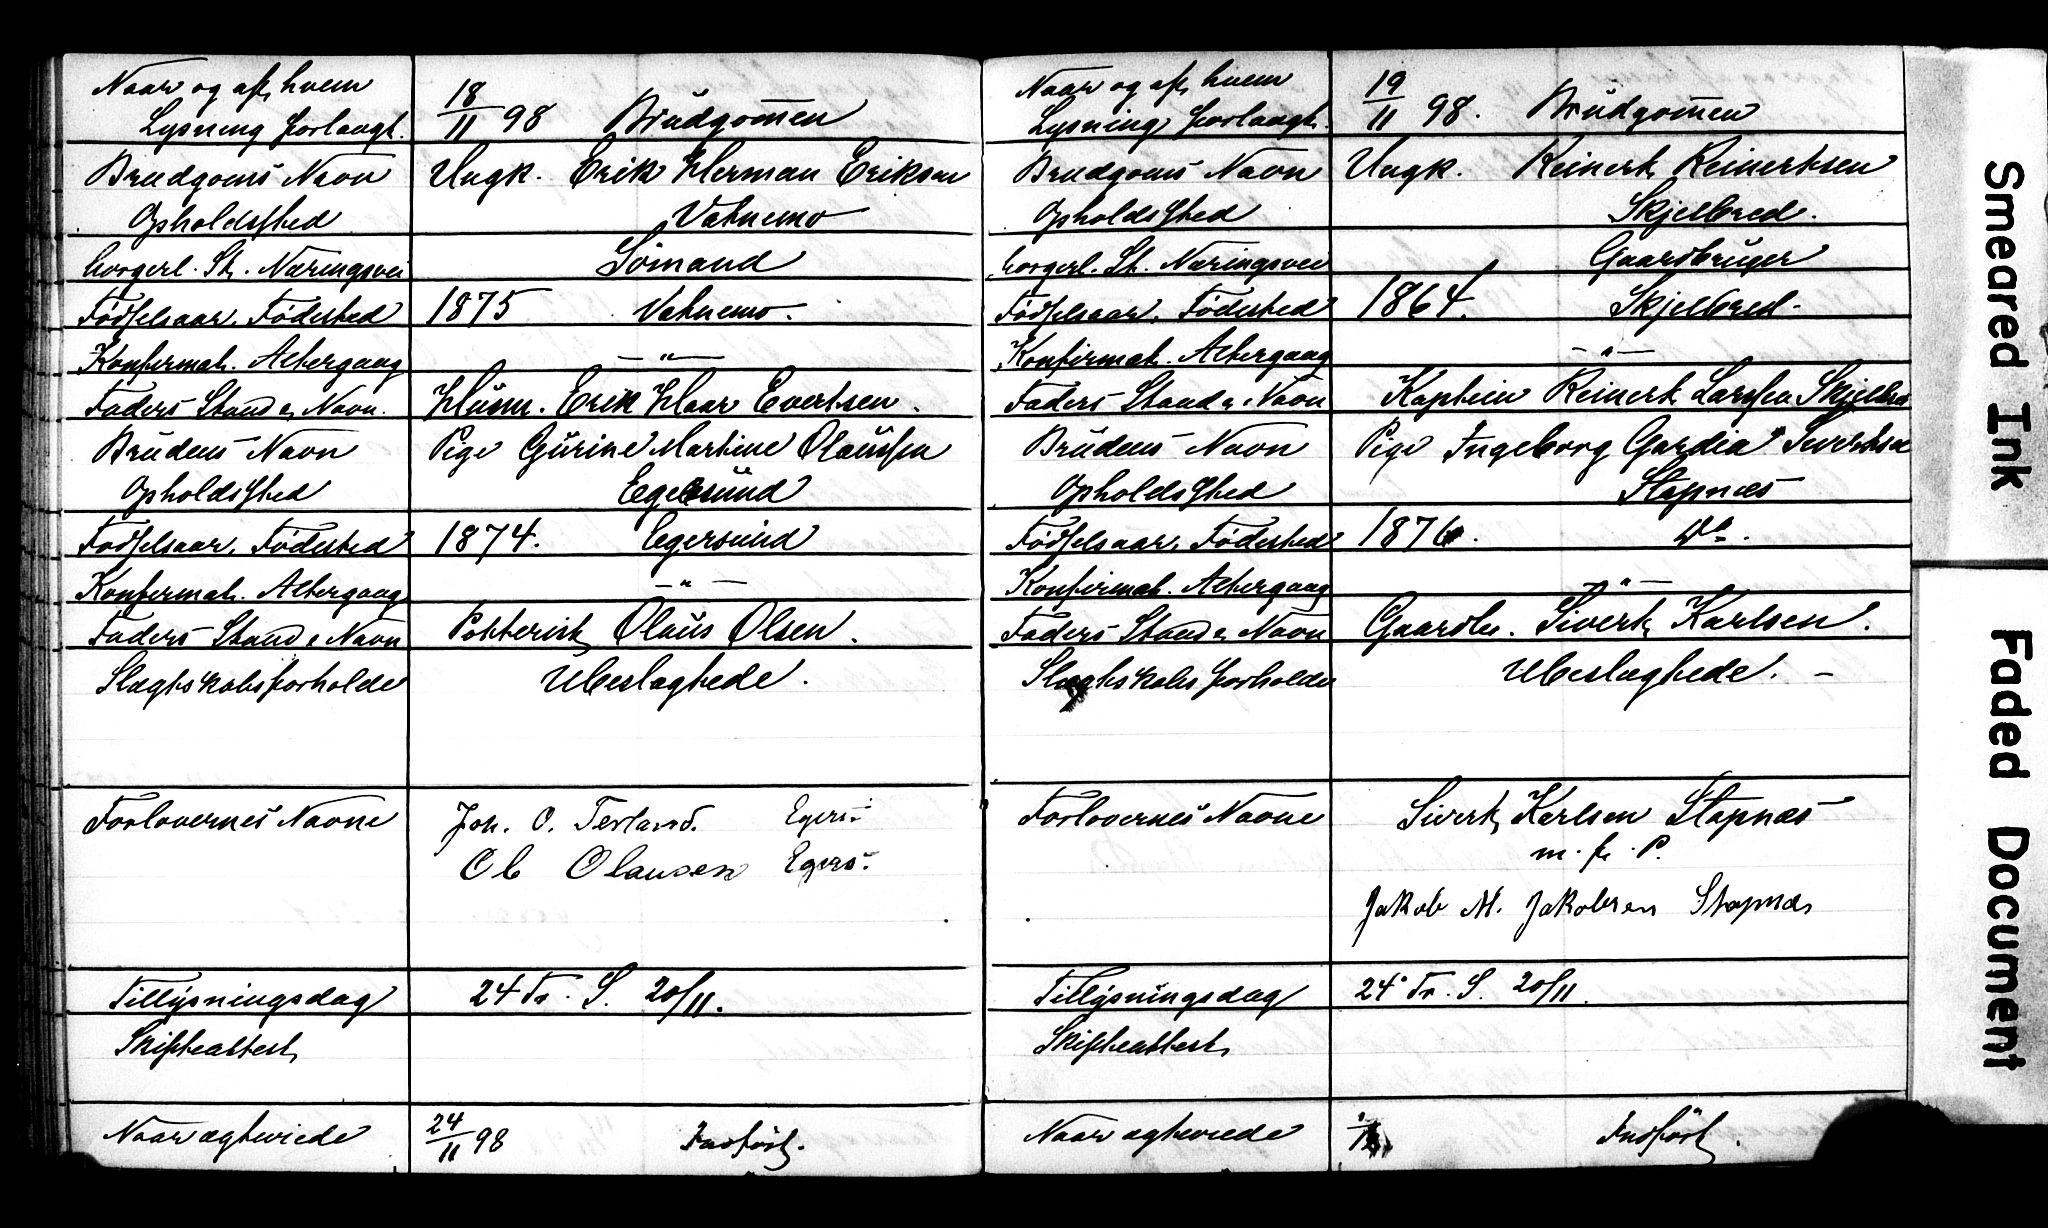 Naar og af hvem
Lysning forlangt. 18/11 98 Brudgommen
Brudgoms Navn Ungk. Erik Herman Eriksen
Opholdssted Vatnemo
borgerl. St. Næringsvei Sömand
Födselsaar. Födested 1875 Vatnemo.
Konfirmat. Altergang — " —
Faders Stand & Navn. Husm. Erik Haar Evertsen.
Brudens Navn Pige Gurine Martine Olaussen
Opholdssted Egersund
Födselsaar. Födested 1874. Egersund
Konfirmat. Altergang — " —
Faders Stand & Navn Olaus Olsen.
Slægtskabsforholde Ubeslægtede.
Forlovernes Navne Joh. O. Terland. Egers.
Ol Olausen Egers.
Tillysningsdag 24 Tr. S. 20/11.
Skifteattest
Naar ægteviede 24/11 98 Indfört.
Naar og af hvem
Lysning forlangt. 19/11 98. Brudgommen
Brudgoms Navn Ungk. Reinert Reinertsen
Opholdssted Skjelbred.
borgerl. St. Næringsvei Gaardbruger
Födselsaar. Födested 1864. Skjelbred.
Konfirmat. Altergang — " —
Faders Stand & Navn Kaptein Reinert Larssen Skjelbre
Brudens Navn Pige Ingeborg Gardia Sivertsen
Opholdssted Stapnæs
Födselsaar. Födested 1876. Do.
Konfirmat. Altergang — " —
Faders Stand & Navn Gaardbr. Sivert Karlsen.
Slægtskabs forholde Ubeslægtede. —
Forlovernes Navne Sivert Karlsen Stapnæs
m. f. P.
Jakob M. Jakobsen Stapnæs
Tillysningsdag 24 Tr. S. 20/11.
Skifteattest
Naar ægteviede Indfört.
Smeared Ink
Faded Document